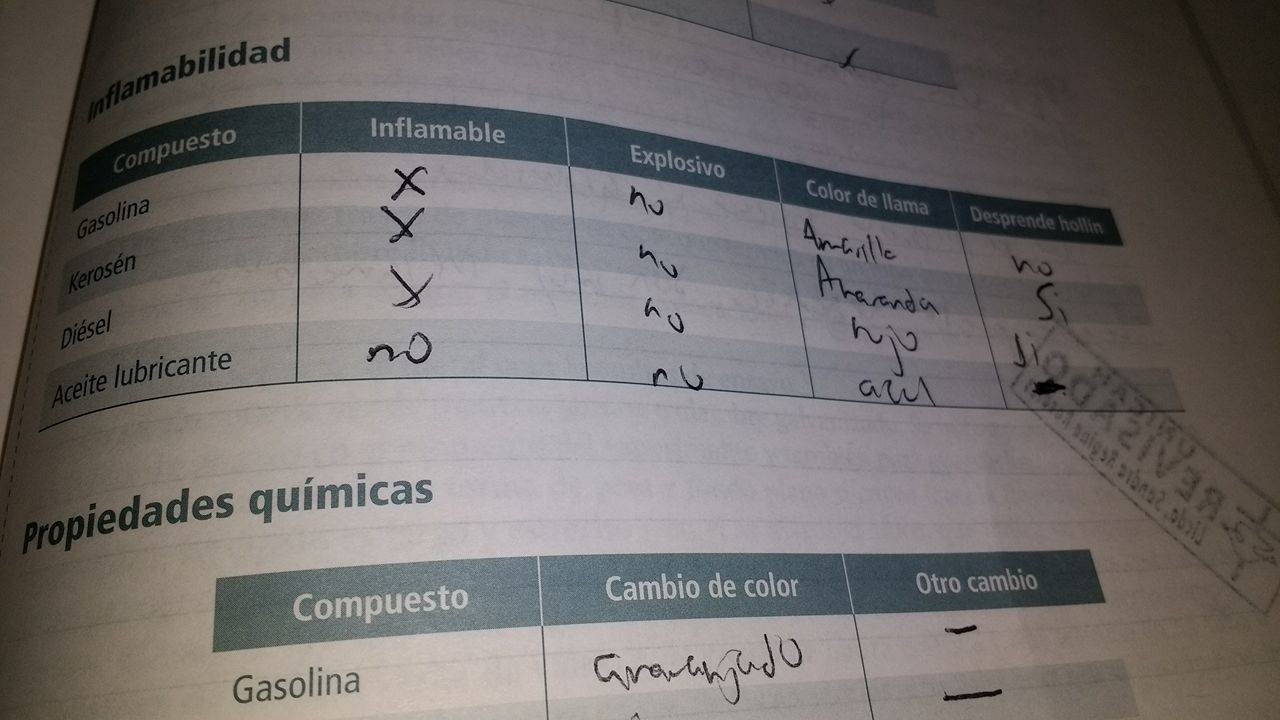 Inflamabilidad
Compuesto Inflamable Explosivo Color de llama Desprende hollín
Gasolina X no Amarilla no
Kerosén X no Si
Diésel X no rojo Si
Aceite lubricante no no azul
Propiedades químicas
Compuesto Cambio de color Otro cambio
Gasolina –
–
REVISADO